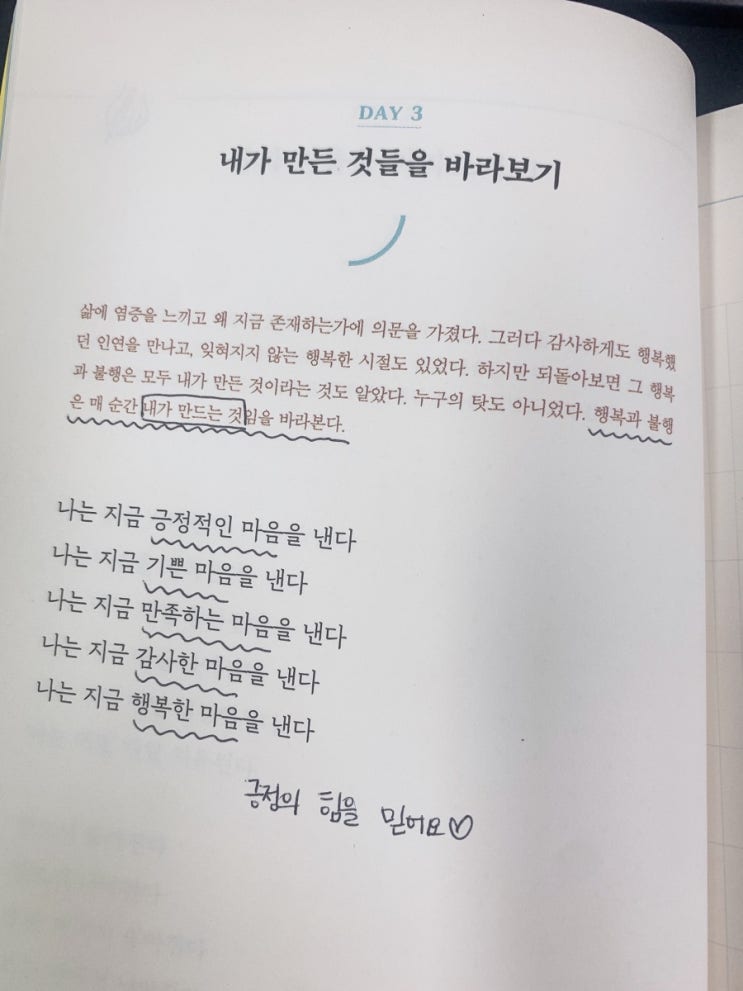 DAY 3
내가 만든 것들을 바라보기
삶에 염증을 느끼고 왜 지금 존재하는가에 의문을 가졌다. 그러다 감사하게도 행복했
던 인연을 만나고, 잊혀지지 않는 행복한 시절도 있었다. 하지만 되돌아보면 그 행복
과 불행은 모두 내가 만든 것이라는 것도 알았다. 누구의 탓도 아니었다. 행복과 불행
은 매 순간 내가 만드는 것임을 바라본다.
나는 지금 긍정적인 마음을 낸다
나는 지금 기쁜 마음을 낸다
나는 지금 만족하는 마음을 낸다
나는 지금 감사한 마음을 낸다
나는 지금 행복한 마음을 낸다
긍정의 힘을 믿어요♡